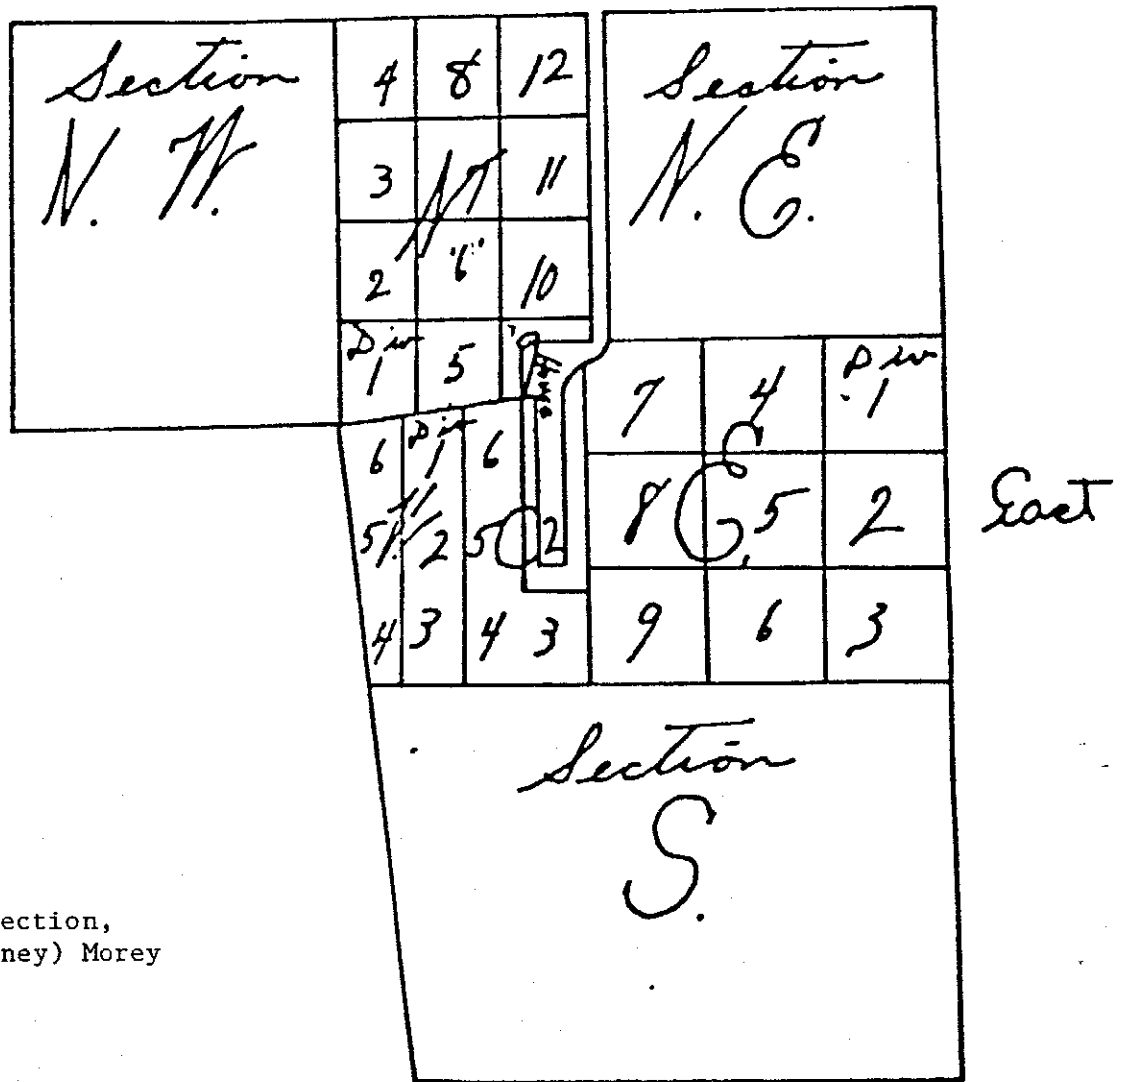 Section
N. W.
4 8 12
3 11
N
2 "6" 10
Div
1 5
Section
N. E.
7 4 Div
1
8 5 2
E.
9 6 3
East
6 Div
1 6
5 2 5 2
W. C
4 3 4 3
Section
S.
ection,
ney) Morey